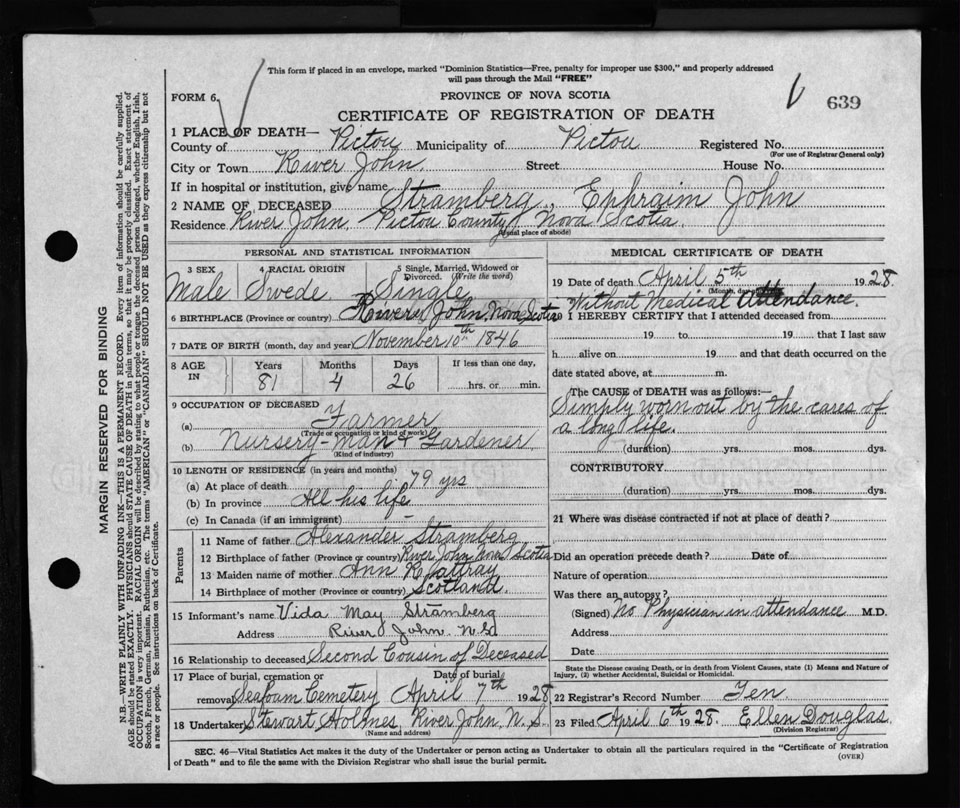 This form if placed in an envelope, marked "Dominion Statistics—Free, penalty for improper use $300," and properly addressed
will pass through the Mail "FREE"
FORM 6.
PROVINCE OF NOVA SCOTIA
639
CERTIFICATE OF REGISTRATION OF DEATH
1 PLACE OF DEATH—
County of Pictou Municipality of Pictou Registered No.
(For use of Registrar General only)
City or Town River John. Street House No.
If in hospital or institution, give name
2 NAME OF DECEASED Stramberg, Ephraim John
Residence River John Pictou County Nova Scotia.
(Usual place of abode)
PERSONAL AND STATISTICAL INFORMATION
3 SEX Male
4 RACIAL ORIGIN Swede
5 Single, Married, Widowed or Divorced. (Write the word) Single
6 BIRTHPLACE (Province or country) River John, Nova Scotia
7 DATE OF BIRTH (month, day and year) November 10th 1846
8 AGE IN Years 81 Months 4 Days 26 If less than one day, hrs. or min.
9 OCCUPATION OF DECEASED
(a) Farmer
(Trade or occupation or kind of work)
(b) Nursery-man & Gardener
(Kind of industry)
10 LENGTH OF RESIDENCE (in years and months)
(a) At place of death 79 yrs
(b) In province All his life
(c) In Canada (if an immigrant) -
Parents
11 Name of father Alexander Stramberg
12 Birthplace of father (Province or country) River John Nova Scotia
13 Maiden name of mother Ann Rattray
14 Birthplace of mother (Province or country) Scotland.
15 Informant's name Vida May Stramberg
Address River John N.S.
16 Relationship to deceased Second Cousin of Deceased
17 Place of burial, cremation or removal Seafoam Cemetery Date of burial April 7th 1928
18 Undertaker Stewart Holmes River John N.S.
(Name and address)
MEDICAL CERTIFICATE OF DEATH
19 Date of death April 5th 1928.
Without Medical Attendance.
I HEREBY CERTIFY that I attended deceased from
19 to 19 that I last saw
h alive on 19 and that death occurred on the
date stated above, at m.
The CAUSE of DEATH was as follows:—
Simply worn out by the cares of
a long life.
(duration) yrs. mos. dys.
CONTRIBUTORY
(duration) yrs. mos. dys.
21 Where was disease contracted if not at place of death?
Did an operation precede death? Date of
Nature of operation
Was there an autopsy?
(Signed) No Physician in attendance M.D.
Address
Date
State the Disease causing Death, or in death from Violent Causes, state (1) Means and Nature of
Injury, (2) whether Accidental, Suicidal or Homicidal.
22 Registrar's Record Number Ten
23 Filed April 6th 1928. Ellen Douglas
(Division Registrar)
SEC. 46—Vital Statistics Act makes it the duty of the Undertaker or person acting as Undertaker to obtain all the particulars required in the "Certificate of Registration
of Death" and to file the same with the Division Registrar who shall issue the burial permit.
(OVER)
MARGIN RESERVED FOR BINDING
N.B.—WRITE PLAINLY WITH UNFADING INK—THIS IS A PERMANENT RECORD. Every item of information should be carefully supplied.
AGE should be stated EXACTLY. PHYSICIANS should STATE CAUSE OF DEATH in plain terms, so that it may be properly classified. Exact statement of
OCCUPATION is very important. RACIAL ORIGIN will be described by stating to what people or tongue the deceased person belonged, whether English, Irish,
Scotch, French, German, Russian, Ruthenian, etc. The terms "AMERICAN" or "CANADIAN" SHOULD NOT BE USED as they express citizenship but not
a race or people. See instructions on back of Certificate.